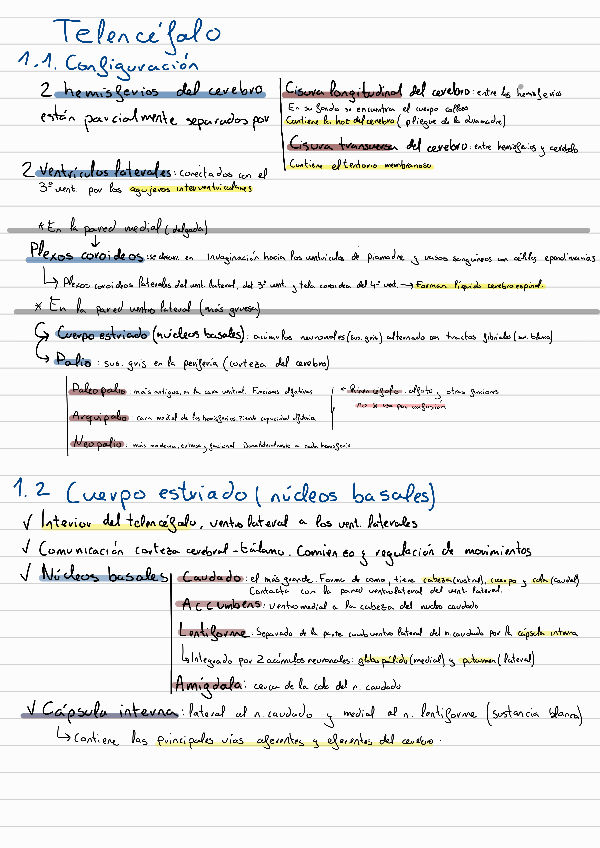 Telencéfalo
1.1. Configuración
2 hemisferios del cerebro
están parcialmente separados por
Cisura longitudinal del cerebro: entre los hemisferios
En su fondo se encuentra el cuerpo calloso
Contiene la hoz del cerebro (pliegue de la duramadre)
Cisura transversa del cerebro: entre hemisferios y cerebelo
Contiene el tentorio membranoso
2 ventrículos laterales: conectados con el
3º vent. por los agujeros interventriculares
* En la pared medial (delgada)
Plexos coroideos: se desarr. en invaginación hacia los ventrículos de piamadre y vasos sanguíneos con células ependimarias
↳ Plexos coroideos laterales del vent. lateral, del 3º vent. y tela coroidea del 4º vent. → Forman líquido cerebroespinal.
* En la pared ventrolateral (más gruesa)
↳ Cuerpo estriado (núcleos basales): acúmulos neuronales (sus. gris) alternado con tractos fibriales (sus. blanca)
↳ Palio: sus. gris en la periferia (corteza del cerebro)
Paleopalio: más antigua, en la cara ventral. Funciones olfativas
Arquipalio: cara medial de los hemisferios. Pierde capacidad olfatoria
Neopalio: más moderna, extensa y funcional. Dorsolateralmente a cada hemisferio
* Rinencéfalo: olfato y otras funciones
No se usa por confusión
1.2 Cuerpo estriado (núcleos basales)
√ Interior del telencéfalo, ventrolateral a los vent. laterales
√ Comunicación corteza cerebral - tálamo. Comienzo y regulación de movimientos
√ Núcleos basales
Caudado: el más grande. Forma de coma, tiene cabeza (rostral), cuerpo y cola (caudal)
Contacta con la pared ventrolateral del vent. lateral.
Accumbens: ventromedial a la cabeza del nucleo caudado
Lentiforme: Separado de la parte ventrolateral del n. caudado por la cápsula interna
↳ Integrado por 2 acúmulos neuronales: globo pálido (medial) y putamen (lateral)
Amígdala: cerca de la cola del n. caudado
√ Cápsula interna: lateral al n. caudado y medial al n. lentiforme (sustancia blanca)
↳ Contiene las principales vías aferentes y eferentes del cerebro.